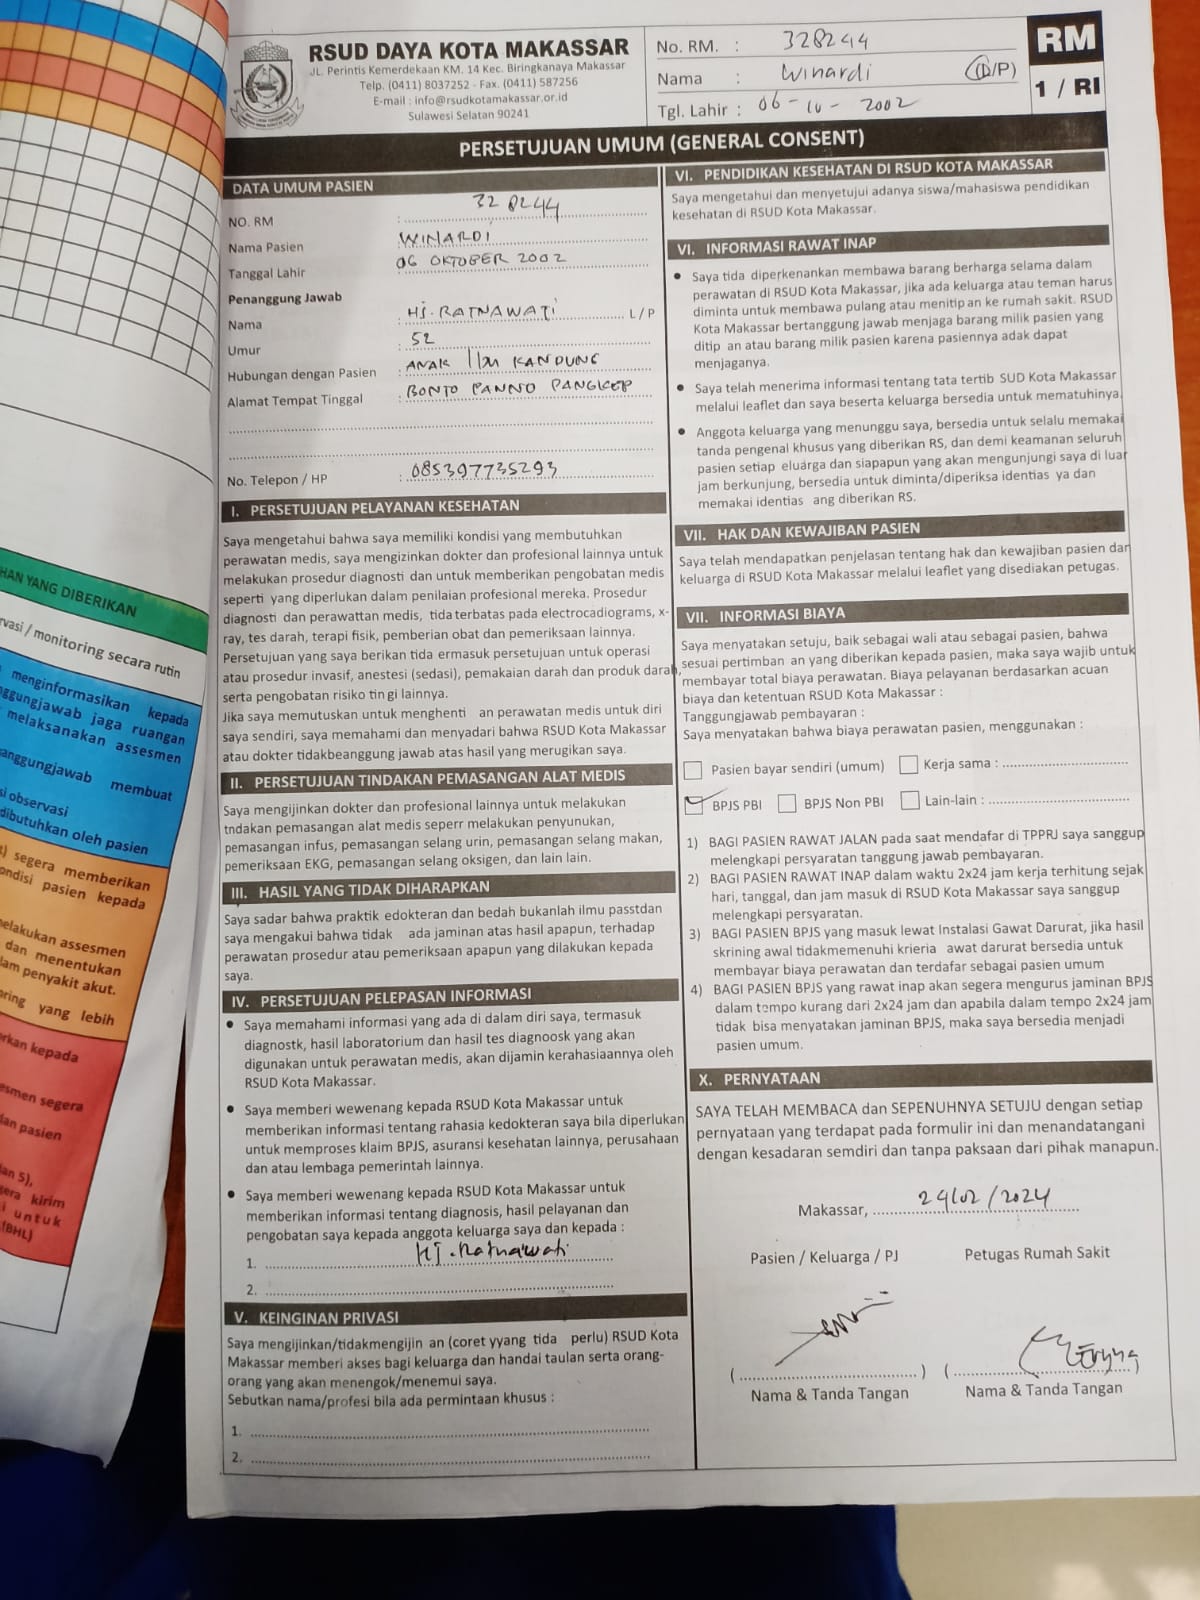 RSUD DAYA KOTA MAKASSAR
JL. Perintis Kemerdekaan KM. 14 Kec. Biringkanaya Makassar
Telp. (0411) 8037252 - Fax. (0411) 587256
E-mail : info@rsudkotamakassar.or.id
Sulawesi Selatan 90241
No. RM. : 328244
Nama : Winardi (L/P)
Tgl. Lahir : 06-10-2002
RM
1 / RI
PERSETUJUAN UMUM (GENERAL CONSENT)
DATA UMUM PASIEN
NO. RM : 328244
Nama Pasien : WINARDI
Tanggal Lahir : 06 OKTOBER 2002
Penanggung Jawab
Nama : Hj. RATNAWATI L / P
Umur : 52
Hubungan dengan Pasien : ANAK KANDUNG
Alamat Tempat Tinggal : BONTO PANNO PANGKEP
No. Telepon / HP : 085397735293
I. PERSETUJUAN PELAYANAN KESEHATAN
Saya mengetahui bahwa saya memiliki kondisi yang membutuhkan
perawatan medis, saya mengizinkan dokter dan profesional lainnya untuk
melakukan prosedur diagnosti dan untuk memberikan pengobatan medis
seperti yang diperlukan dalam penilaian profesional mereka. Prosedur
diagnosti dan perawattan medis, tida terbatas pada electrocadiograms, x-
ray, tes darah, terapi fisik, pemberian obat dan pemeriksaan lainnya.
Persetujuan yang saya berikan tida ermasuk persetujuan untuk operasi
atau prosedur invasif, anestesi (sedasi), pemakaian darah dan produk darah,
serta pengobatan risiko tin gi lainnya.
Jika saya memutuskan untuk menghenti an perawatan medis untuk diri
saya sendiri, saya memahami dan menyadari bahwa RSUD Kota Makassar
atau dokter tidakbeanggung jawab atas hasil yang merugikan saya.
II. PERSETUJUAN TINDAKAN PEMASANGAN ALAT MEDIS
Saya mengijinkan dokter dan profesional lainnya untuk melakukan
tndakan pemasangan alat medis seperr melakukan penyunukan,
pemasangan infus, pemasangan selang urin, pemasangan selang makan,
pemeriksaan EKG, pemasangan selang oksigen, dan lain lain.
III. HASIL YANG TIDAK DIHARAPKAN
Saya sadar bahwa praktik edokteran dan bedah bukanlah ilmu passtdan
saya mengakui bahwa tidak ada jaminan atas hasil apapun, terhadap
perawatan prosedur atau pemeriksaan apapun yang dilakukan kepada
saya.
IV. PERSETUJUAN PELEPASAN INFORMASI
• Saya memahami informasi yang ada di dalam diri saya, termasuk
diagnostk, hasil laboratorium dan hasil tes diagnoosk yang akan
digunakan untuk perawatan medis, akan dijamin kerahasiaannya oleh
RSUD Kota Makassar.
• Saya memberi wewenang kepada RSUD Kota Makassar untuk
memberikan informasi tentang rahasia kedokteran saya bila diperlukan
untuk memproses klaim BPJS, asuransi kesehatan lainnya, perusahaan
dan atau lembaga pemerintah lainnya.
• Saya memberi wewenang kepada RSUD Kota Makassar untuk
memberikan informasi tentang diagnosis, hasil pelayanan dan
pengobatan saya kepada anggota keluarga saya dan kepada :
1. Hj. Ratnawati
2.
V. KEINGINAN PRIVASI
Saya mengijinkan/tidakmengijin an (coret yyang tida perlu) RSUD Kota
Makassar memberi akses bagi keluarga dan handai taulan serta orang-
orang yang akan menengok/menemui saya.
Sebutkan nama/profesi bila ada permintaan khusus :
1.
2.
VI. PENDIDIKAN KESEHATAN DI RSUD KOTA MAKASSAR
Saya mengetahui dan menyetujui adanya siswa/mahasiswa pendidikan
kesehatan di RSUD Kota Makassar.
VI. INFORMASI RAWAT INAP
• Saya tida diperkenankan membawa barang berharga selama dalam
perawatan di RSUD Kota Makassar, jika ada keluarga atau teman harus
diminta untuk membawa pulang atau menitip an ke rumah sakit. RSUD
Kota Makassar bertanggung jawab menjaga barang milik pasien yang
ditip an atau barang milik pasien karena pasiennya adak dapat
menjaganya.
• Saya telah menerima informasi tentang tata tertib SUD Kota Makassar
melalui leaflet dan saya beserta keluarga bersedia untuk mematuhinya.
• Anggota keluarga yang menunggu saya, bersedia untuk selalu memakai
tanda pengenal khusus yang diberikan RS, dan demi keamanan seluruh
pasien setiap eluarga dan siapapun yang akan mengunjungi saya di luar
jam berkunjung, bersedia untuk diminta/diperiksa identias ya dan
memakai identias ang diberikan RS.
VII. HAK DAN KEWAJIBAN PASIEN
Saya telah mendapatkan penjelasan tentang hak dan kewajiban pasien dan
keluarga di RSUD Kota Makassar melalui leaflet yang disediakan petugas.
VII. INFORMASI BIAYA
Saya menyatakan setuju, baik sebagai wali atau sebagai pasien, bahwa
sesuai pertimban an yang diberikan kepada pasien, maka saya wajib untuk
membayar total biaya perawatan. Biaya pelayanan berdasarkan acuan
biaya dan ketentuan RSUD Kota Makassar :
Tanggungjawab pembayaran :
Saya menyatakan bahwa biaya perawatan pasien, menggunakan :
Pasien bayar sendiri (umum) Kerja sama :
BPJS PBI BPJS Non PBI Lain-lain :
1) BAGI PASIEN RAWAT JALAN pada saat mendafar di TPPRJ saya sanggup
melengkapi persyaratan tanggung jawab pembayaran.
2) BAGI PASIEN RAWAT INAP dalam waktu 2x24 jam kerja terhitung sejak
hari, tanggal, dan jam masuk di RSUD Kota Makassar saya sanggup
melengkapi persyaratan.
3) BAGI PASIEN BPJS yang masuk lewat Instalasi Gawat Darurat, jika hasil
skrining awal tidakmemenuhi krieria awat darurat bersedia untuk
membayar biaya perawatan dan terdafar sebagai pasien umum
4) BAGI PASIEN BPJS yang rawat inap akan segera mengurus jaminan BPJS
dalam tempo kurang dari 2x24 jam dan apabila dalam tempo 2x24 jam
tidak bisa menyatakan jaminan BPJS, maka saya bersedia menjadi
pasien umum.
X. PERNYATAAN
SAYA TELAH MEMBACA dan SEPENUHNYA SETUJU dengan setiap
pernyataan yang terdapat pada formulir ini dan menandatangani
dengan kesadaran semdiri dan tanpa paksaan dari pihak manapun.
Makassar, 29/02/2024
Pasien / Keluarga / PJ Petugas Rumah Sakit
Nama & Tanda Tangan Nama & Tanda Tangan
HAN YANG DIBERIKAN
rvasi / monitoring secara rutin
menginformasikan kepada
nggungjawab jaga ruangan
melaksanakan assesmen
anggungjawab membuat
si observasi
dibutuhkan oleh pasien
segera memberikan
ondisi pasien kepada
melakukan assesmen
dan menentukan
lam penyakit akut.
oring yang lebih
orkan kepada
esmen segera
dan pasien
dan 5),
gera kirim
i untuk
(BHL)